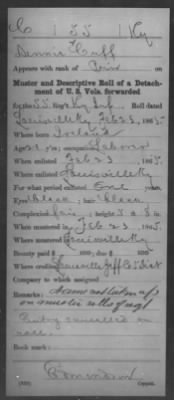 C | 55 | Ky
Dennis Cuff
Appears with rank of Priv on
Muster and Descriptive Roll of a Detachment of U. S. Vols. forwarded
for the 55 Reg't Ky Inf. Roll dated
Louisville Ky Feb 23, 1865.
Where born Ireland
Age 21 y'rs; occupation Laborer
When enlisted Feb 23, 1865.
Where enlisted Louisville Ky
For what period enlisted One years.
Eyes Black; hair Black
Complexion Fair; height 5 ft. 8 in.
When mustered in Feb 23, 1865.
Where mustered in Louisville Ky
Bounty paid $ 100; due $ 100
Where credited Louisville Jeff Co 5 Dist
Company to which assigned
Remarks: Name not taken up
on muster rolls of regt
Entry cancelled on
roll.
Book mark:
(339) Copyist.